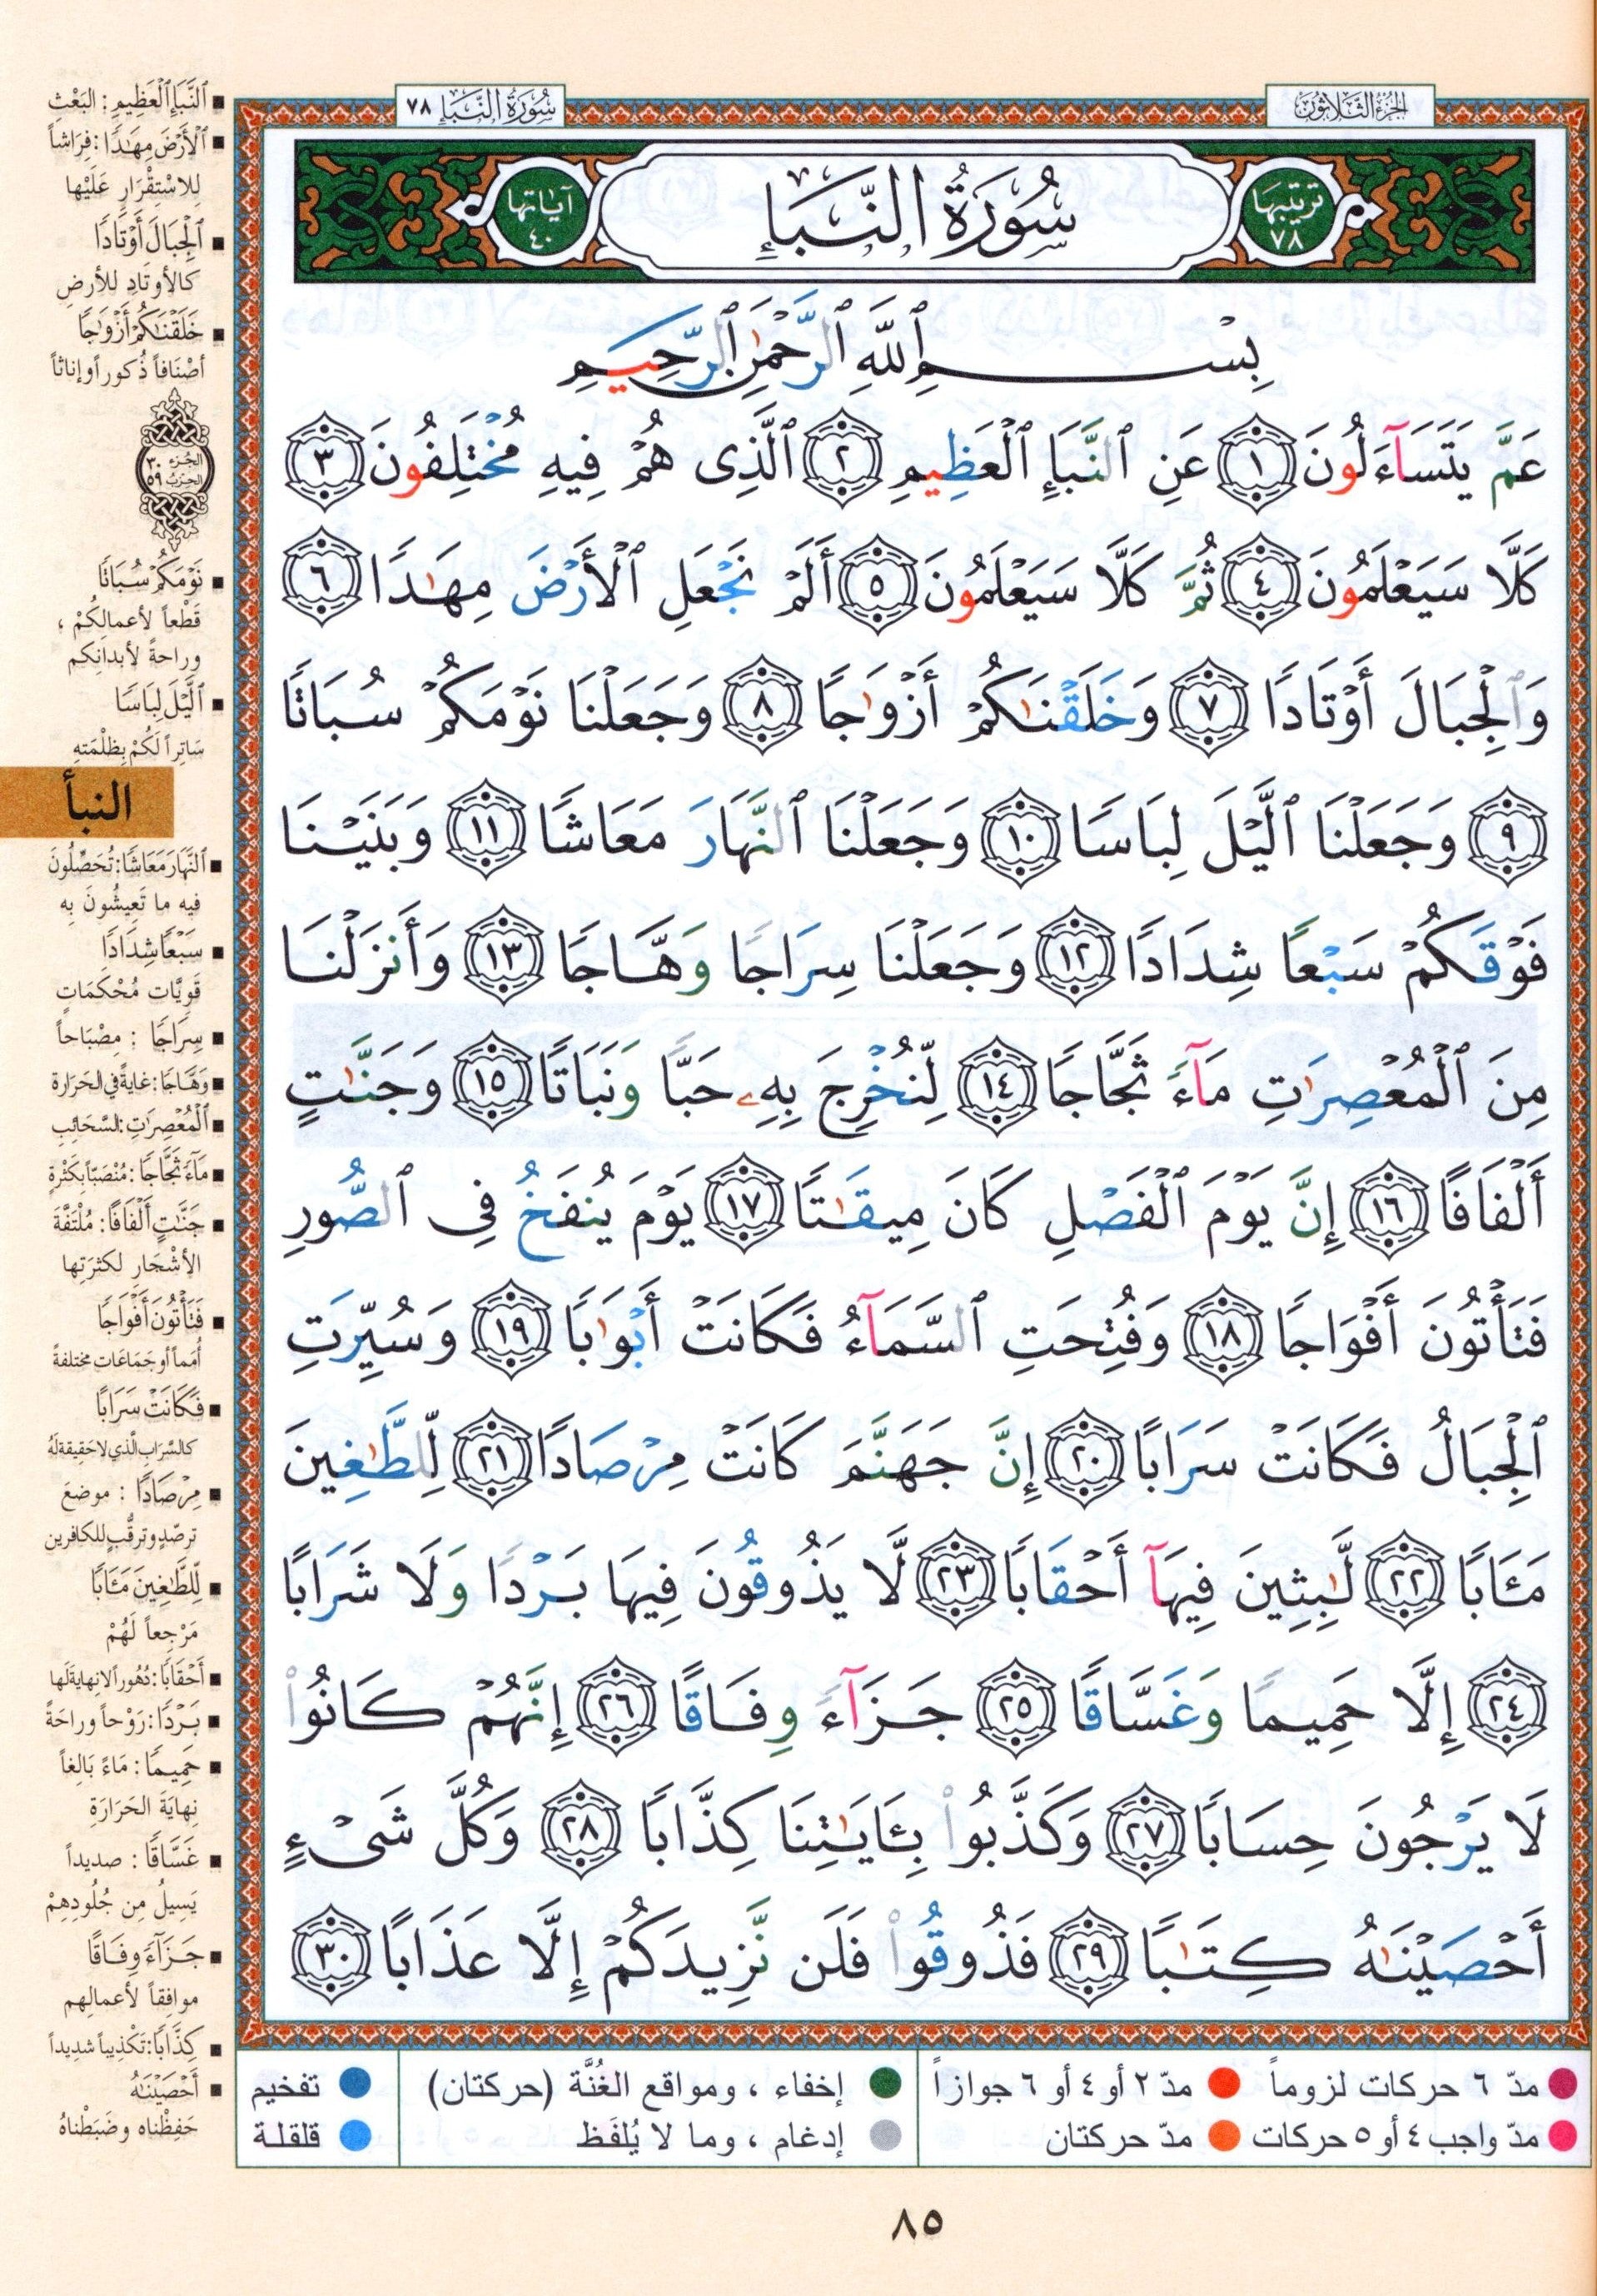 الجزء الثلاثون
سورة النبإ ٧٨
ترتيبها
٧٨
سُورَةُ النَّبَإِ
آياتها
٤٠
بِسْمِ ٱللَّهِ ٱلرَّحْمَٰنِ ٱلرَّحِيمِ
عَمَّ يَتَسَآءَلُونَ ١ عَنِ ٱلنَّبَإِ ٱلْعَظِيمِ ٢ ٱلَّذِى هُمْ فِيهِ مُخْتَلِفُونَ ٣
كَلَّا سَيَعْلَمُونَ ٤ ثُمَّ كَلَّا سَيَعْلَمُونَ ٥ أَلَمْ نَجْعَلِ ٱلْأَرْضَ مِهَٰدًا ٦
وَٱلْجِبَالَ أَوْتَادًا ٧ وَخَلَقْنَٰكُمْ أَزْوَٰجًا ٨ وَجَعَلْنَا نَوْمَكُمْ سُبَاتًا
٩ وَجَعَلْنَا ٱلَّيْلَ لِبَاسًا ١٠ وَجَعَلْنَا ٱلنَّهَارَ مَعَاشًا ١١ وَبَنَيْنَا
فَوْقَكُمْ سَبْعًا شِدَادًا ١٢ وَجَعَلْنَا سِرَاجًا وَهَّاجًا ١٣ وَأَنزَلْنَا
مِنَ ٱلْمُعْصِرَٰتِ مَآءً ثَجَّاجًا ١٤ لِّنُخْرِجَ بِهِۦ حَبًّا وَنَبَاتًا ١٥ وَجَنَّٰتٍ
أَلْفَافًا ١٦ إِنَّ يَوْمَ ٱلْفَصْلِ كَانَ مِيقَٰتًا ١٧ يَوْمَ يُنفَخُ فِى ٱلصُّورِ
فَتَأْتُونَ أَفْوَاجًا ١٨ وَفُتِحَتِ ٱلسَّمَآءُ فَكَانَتْ أَبْوَٰبًا ١٩ وَسُيِّرَتِ
ٱلْجِبَالُ فَكَانَتْ سَرَابًا ٢٠ إِنَّ جَهَنَّمَ كَانَتْ مِرْصَادًا ٢١ لِّلطَّٰغِينَ
مَـَٔابًا ٢٢ لَّٰبِثِينَ فِيهَآ أَحْقَابًا ٢٣ لَّا يَذُوقُونَ فِيهَا بَرْدًا وَلَا شَرَابًا
٢٤ إِلَّا حَمِيمًا وَغَسَّاقًا ٢٥ جَزَآءً وِفَاقًا ٢٦ إِنَّهُمْ كَانُوا۟
لَا يَرْجُونَ حِسَابًا ٢٧ وَكَذَّبُوا۟ بِـَٔايَٰتِنَا كِذَّابًا ٢٨ وَكُلَّ شَىْءٍ
أَحْصَيْنَٰهُ كِتَٰبًا ٢٩ فَذُوقُوا۟ فَلَن نَّزِيدَكُمْ إِلَّا عَذَابًا ٣٠
ٱلنَّبَإِ ٱلْعَظِيمِ : البَعْثِ
ٱلْأَرْضَ مِهَٰدًا : فِرَاشاً
لِلاسْتِقْرَارِ عَلَيْها
ٱلْجِبَالَ أَوْتَادًا
كالأوتَادِ للأرضِ
خَلَقْنَٰكُمْ أَزْوَٰجًا
أصْنَافاً ذُكوراً وإناثاً
الجزء ٣٠
الحزب ٥٩
نَوْمَكُمْ سُبَاتًا
قَطْعاً لأعمالِكُمْ ،
وراحةً لأبدانِكم
ٱلَّيْلَ لِبَاسًا
سَاتِراً لَكُمْ بِظلْمَتهِ
النبأ
ٱلنَّهَارَ مَعَاشًا : تُحَصِّلُونَ
فيه ما تَعِيشُونَ بِه
سَبْعًا شِدَادًا
قَوِيَّاتٍ مُحْكَمَاتٍ
سِرَاجًا : مِصْبَاحاً
وَهَّاجًا : غايةً في الحَرَارة
ٱلْمُعْصِرَٰتِ : السَّحَائِبِ
مَآءً ثَجَّاجًا : مُنْصَبّاً بِكَثْرةٍ
جَنَّٰتٍ أَلْفَافًا : مُلْتَفَّةَ
الأشْجَارِ لكثرَتِها
فَتَأْتُونَ أَفْوَاجًا
أُمَماً أو جَمَاعَات مختلفةً
فَكَانَتْ سَرَابًا
كالسَّرَابِ الَّذي لا حَقيقةَ لَهُ
مِرْصَادًا : موضعَ
ترصّدٍ وترقُّبٍ للكافرين
لِّلطَّٰغِينَ مَـَٔابًا
مَرْجِعاً لَهُمْ
أَحْقَابًا : دُهُوراً لا نهايةَ لَها
بَرْدًا : رَوْحاً وراحَةً
حَمِيمًا : مَاءً بَالِغاً
نِهايَةَ الحَرَارَةِ
غَسَّاقًا : صديداً
يَسِيلُ مِن جُلُودِهِمْ
جَزَآءً وِفَاقًا
موافِقاً لأعمالِهم
كِذَّابًا : تَكْذِيباً شديداً
أَحْصَيْنَٰهُ
حَفِظْناه وضَبَطْناهُ
مدّ ٦ حركات لزوماً
مدّ ٢ أو ٤ أو ٦ جوازاً
إخفاء ، ومواقع الغُنَّة (حركتان)
تفخيم
مدّ واجب ٤ أو ٥ حركات
مدّ حركتان
إدغام ، وما لا يُلفَظ
قلقلة
٨٥